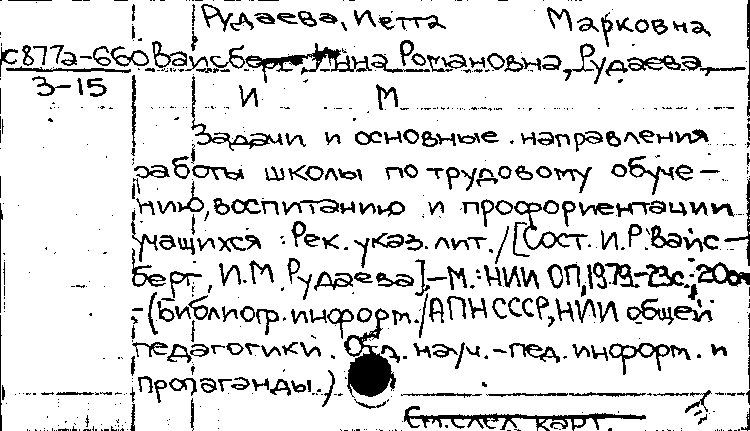 Рудаева, Иетта Марковна
с877а-660 Вайсберг, Инна Романовна, Рудаева,
3-15
И М
Задачи и основные направления
работы школы по трудовому обуче-
нию, воспитанию и профориентации
учащихся : Рек. указ. лит. / [Сост. И.Р. Вайс-
берг, И.М. Рудаева].-М.: НИИ ОП, 1979.-23с.; 20см
-(Библиогр. информ. / АПН СССР, НИИ общей
педагогики. Отд. науч.-пед. информ. и
пропаганды.)
См. след. карт.